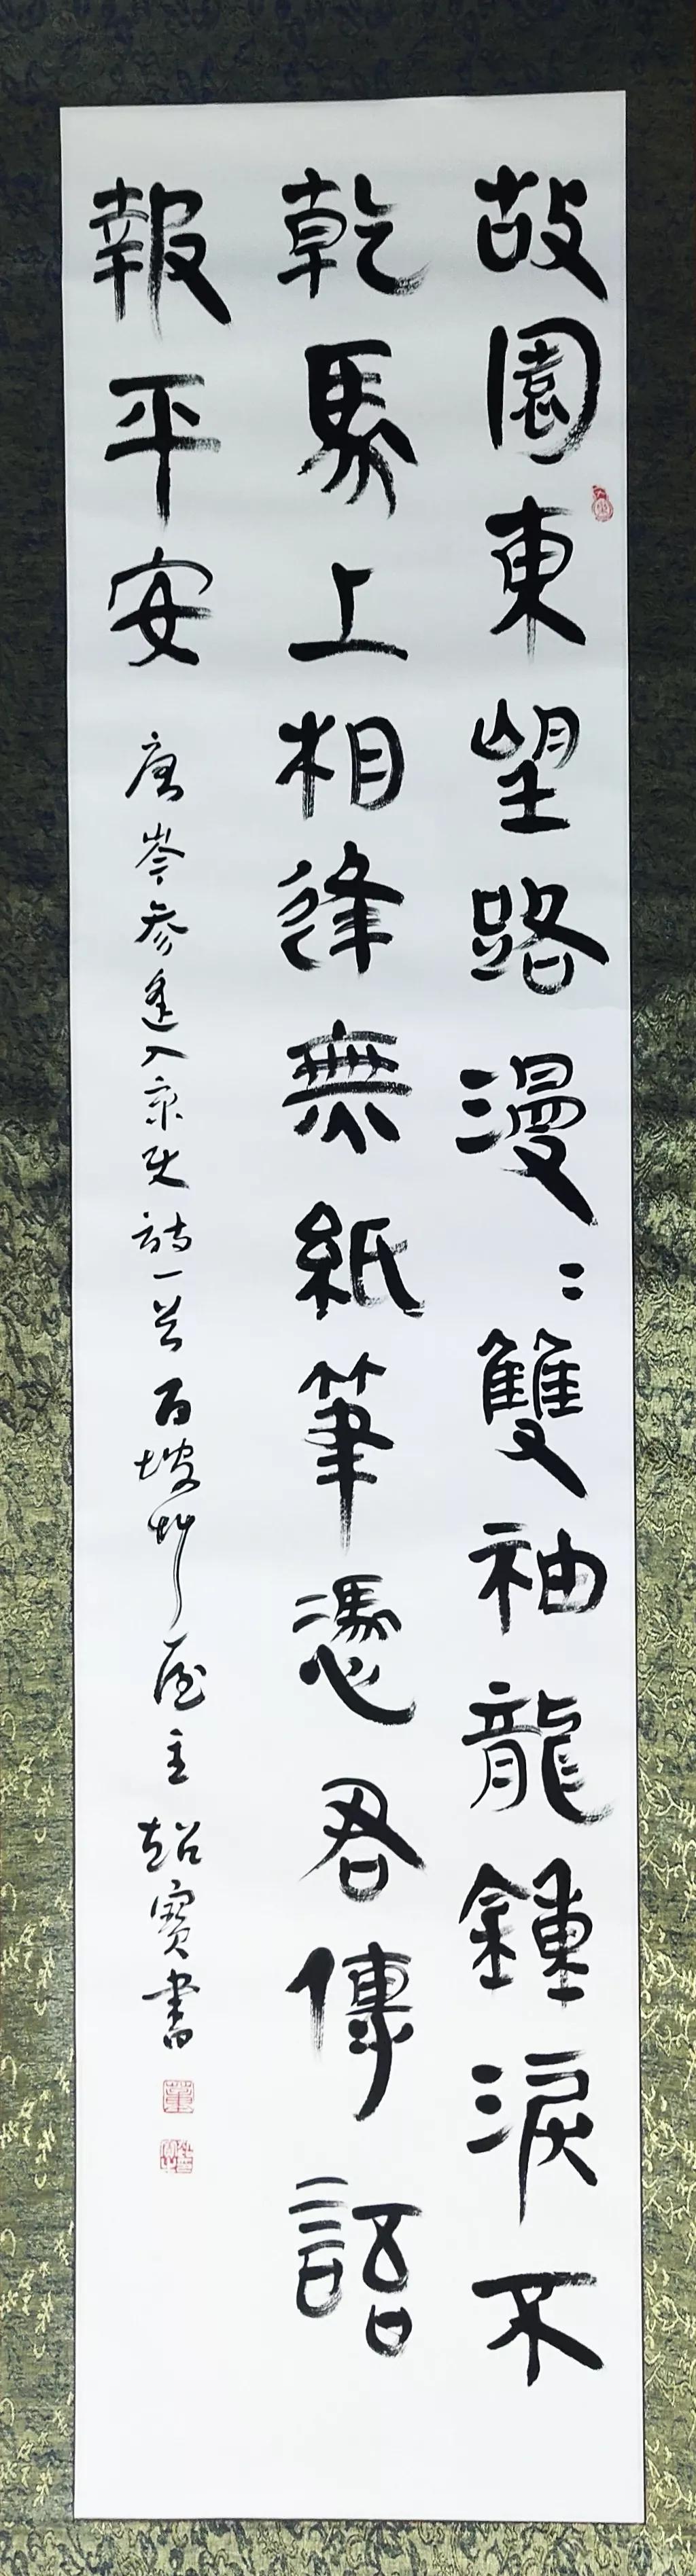 故園東望路漫：雙袖龍鍾淚不
乾馬上相逢無紙筆憑君傳語
報平安
唐岑參逢入京使詩一首百坡草屋主超寶書